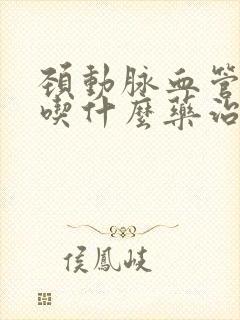 頚動脉血管
喫什麼藥治
侯鳳岐